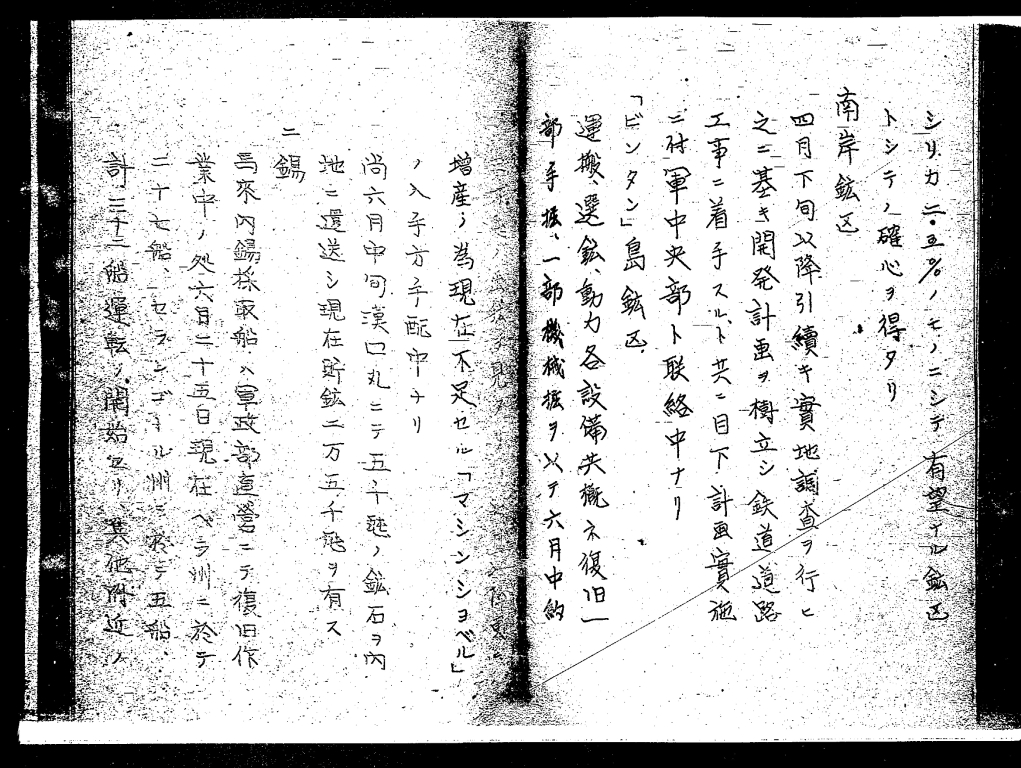 シリカ二・五%ノモノニシテ有望ナル鉱区
トシテノ確心ヲ得タリ
南岸鉱区
四月下旬以降引續キ實地調査ヲ行ヒ
之ニ基キ開発計画ヲ樹立シ鉄道道路
工事ニ着手スルト共ニ目下計画實施
ニ付軍中央部ト联絡中ナリ
「ビンタン」島鉱区
運搬、選鉱、動力各設備共概ネ復旧一
部手掘、一部機械掘ヲ以テ六月中約
増産ノ為現在不足セル「マシンショベル」
ノ入手方手配中ナリ
尚六月中旬漢口丸ニテ五千瓲ノ鉱石ヲ内
地ニ還送シ現在貯鉱二万五千瓲ヲ有ス
二
錫
馬來内錫採取船ハ軍政部直營ニテ復旧作
業中ノ処六月二十五日現在ペラ州ニ於テ
二十七船、セランゴール州ニ於テ五船、
計三十二船運転ノ開始セリ、其他附近ノ